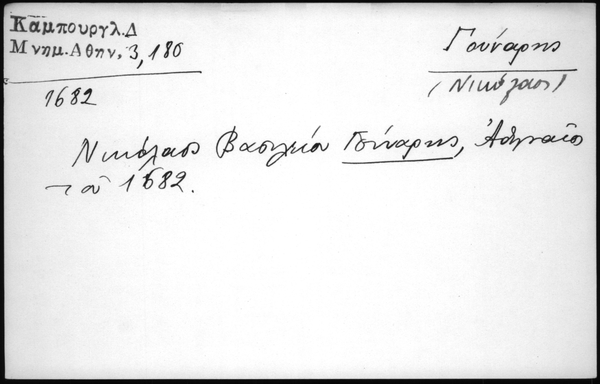 Καμπουργλ.Δ
Μνημ.Αθην. 3, 180
Γούναρης
(Νικόλαος)
1682
Νικόλαος Βασιλείου Γούναρης, Ἀθηναῖος
τοῦ 1682.